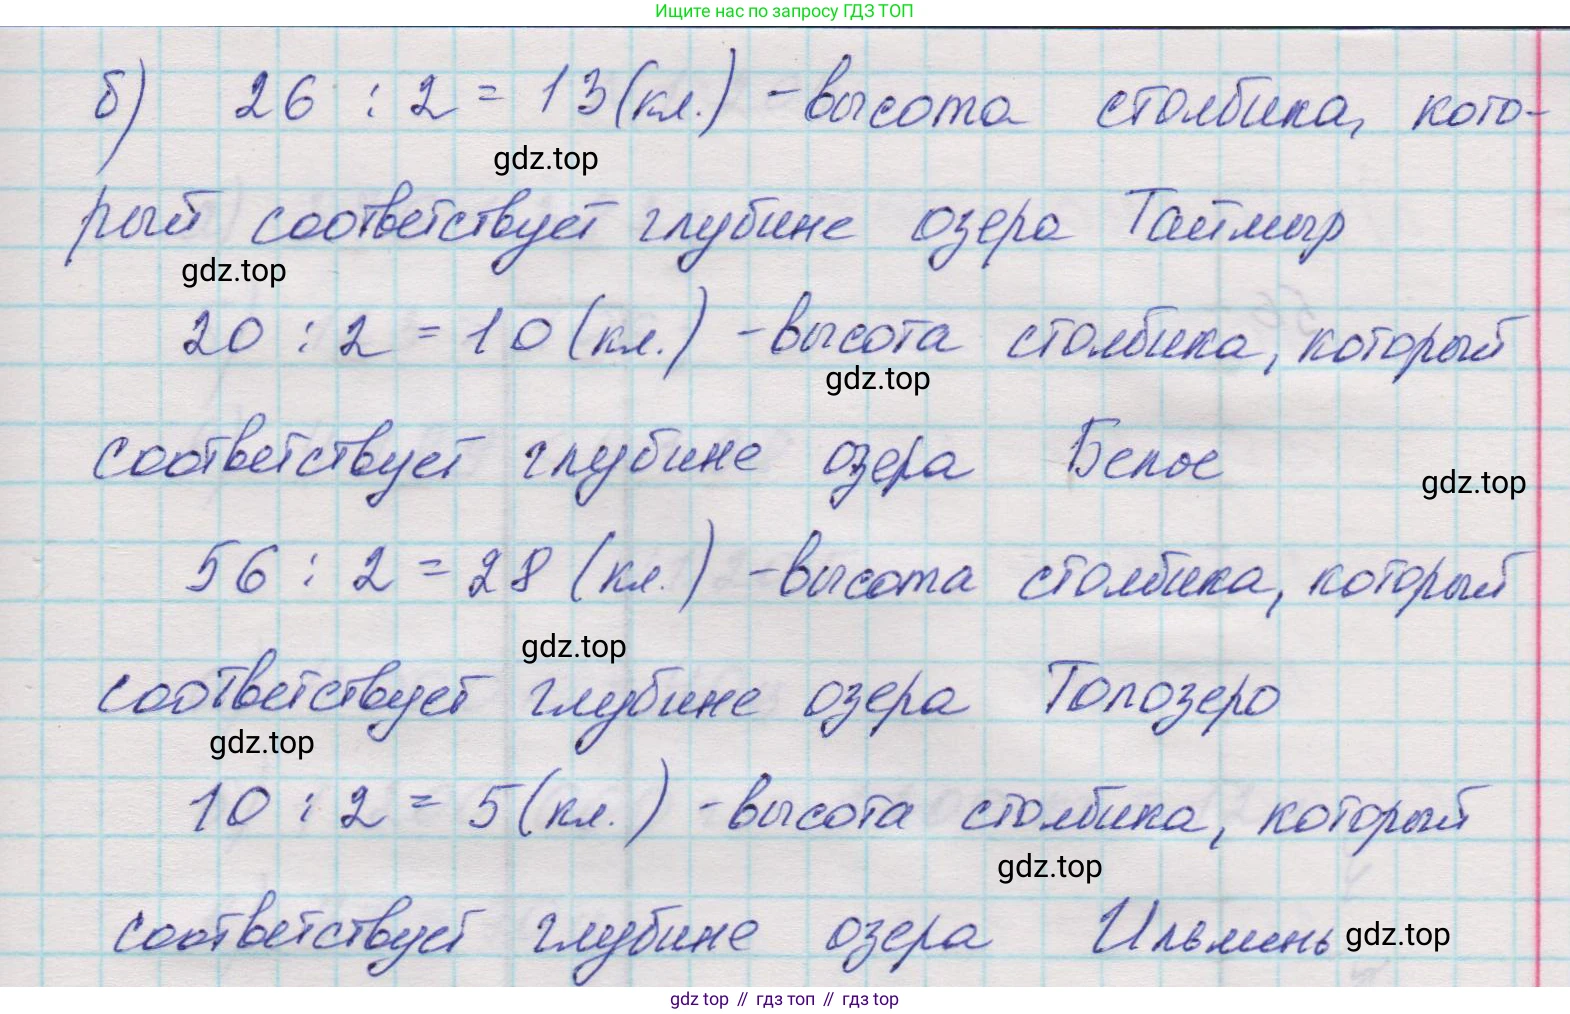 Ищите нас по запросу ГДЗ ТОП
б) 26 : 2 = 13 (кл.) - высота столбика, кото-
gdz.top
рый соответствует глубине озера Таймыр
gdz.top
20 : 2 = 10 (кл.) - высота столбика, который
gdz.top
соответствует глубине озера Белое
gdz.top
56 : 2 = 28 (кл.) - высота столбика, который
gdz.top
соответствует глубине озера Топозеро
gdz.top
10 : 2 = 5 (кл.) - высота столбика, который
gdz.top
соответствует глубине озера Ильмень
gdz.top
gdz top // гдз топ // гдз top